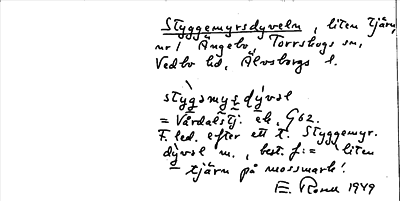 Styggemyrsdyveln, liten tjärn,
nr 1 Ängebo, Torrskogs sn,
Vedbo hd, Älvsborgs l.
stygəmyʂdývəl
= Vårdalstj. ek. G62.
F. led. efter ett t. Styggemyr.
dývəl m., best. f: = liten
tjärn på mossmark!
E. 1949